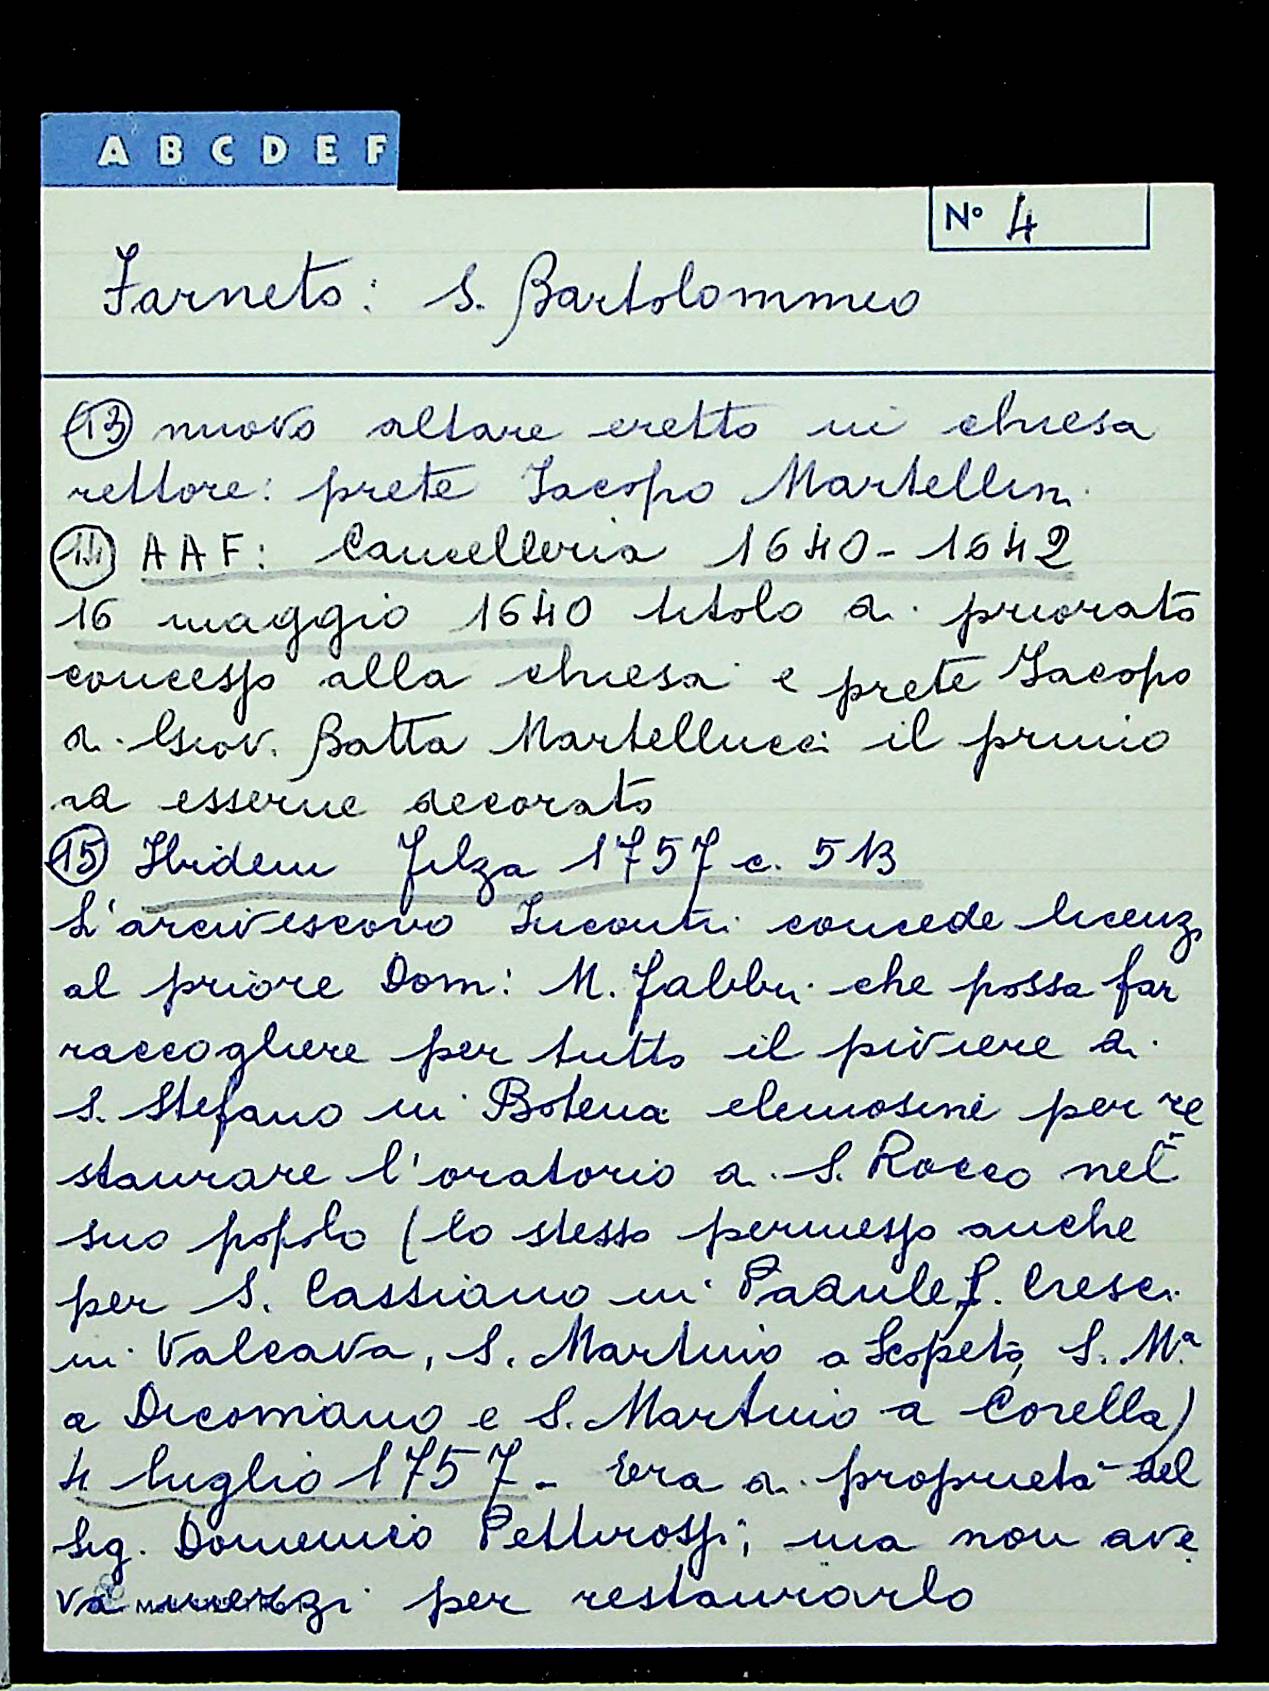 A B C D E F
N° 4
Farneto: S. Bartolommeo
13 nuovo altare eretto in chiesa
rettore: prete Iacopo Martellin
14 AAF: Cancelleria 1640-1642
16 maggio 1640 titolo di priorato
concesso alla chiesa e prete Iacopo
di Giov. Batta Martellucci il primio
ad esserne decorato
15 Ibidem Filza 1757 c. 513
L'arcivescovo Incontri concede licenz
al priore Dom: M. Fabbri che possa far
raccogliere per tutto il piviere di
S. Stefano in Botena elemosine per re
staurare l'oratorio di S. Rocco nel
suo popolo (lo stesso permesso anche
per S. Cassiano in Padule, S. Cresci
in Valcava, S. Martino a Scopeto, S. Mª
a Dicomano e S. Martino a Corella)
4 luglio 1757 - Era di proprietà del
Sig. Domenico Pettirossi; ma non ave
va mezzi per restaurarlo